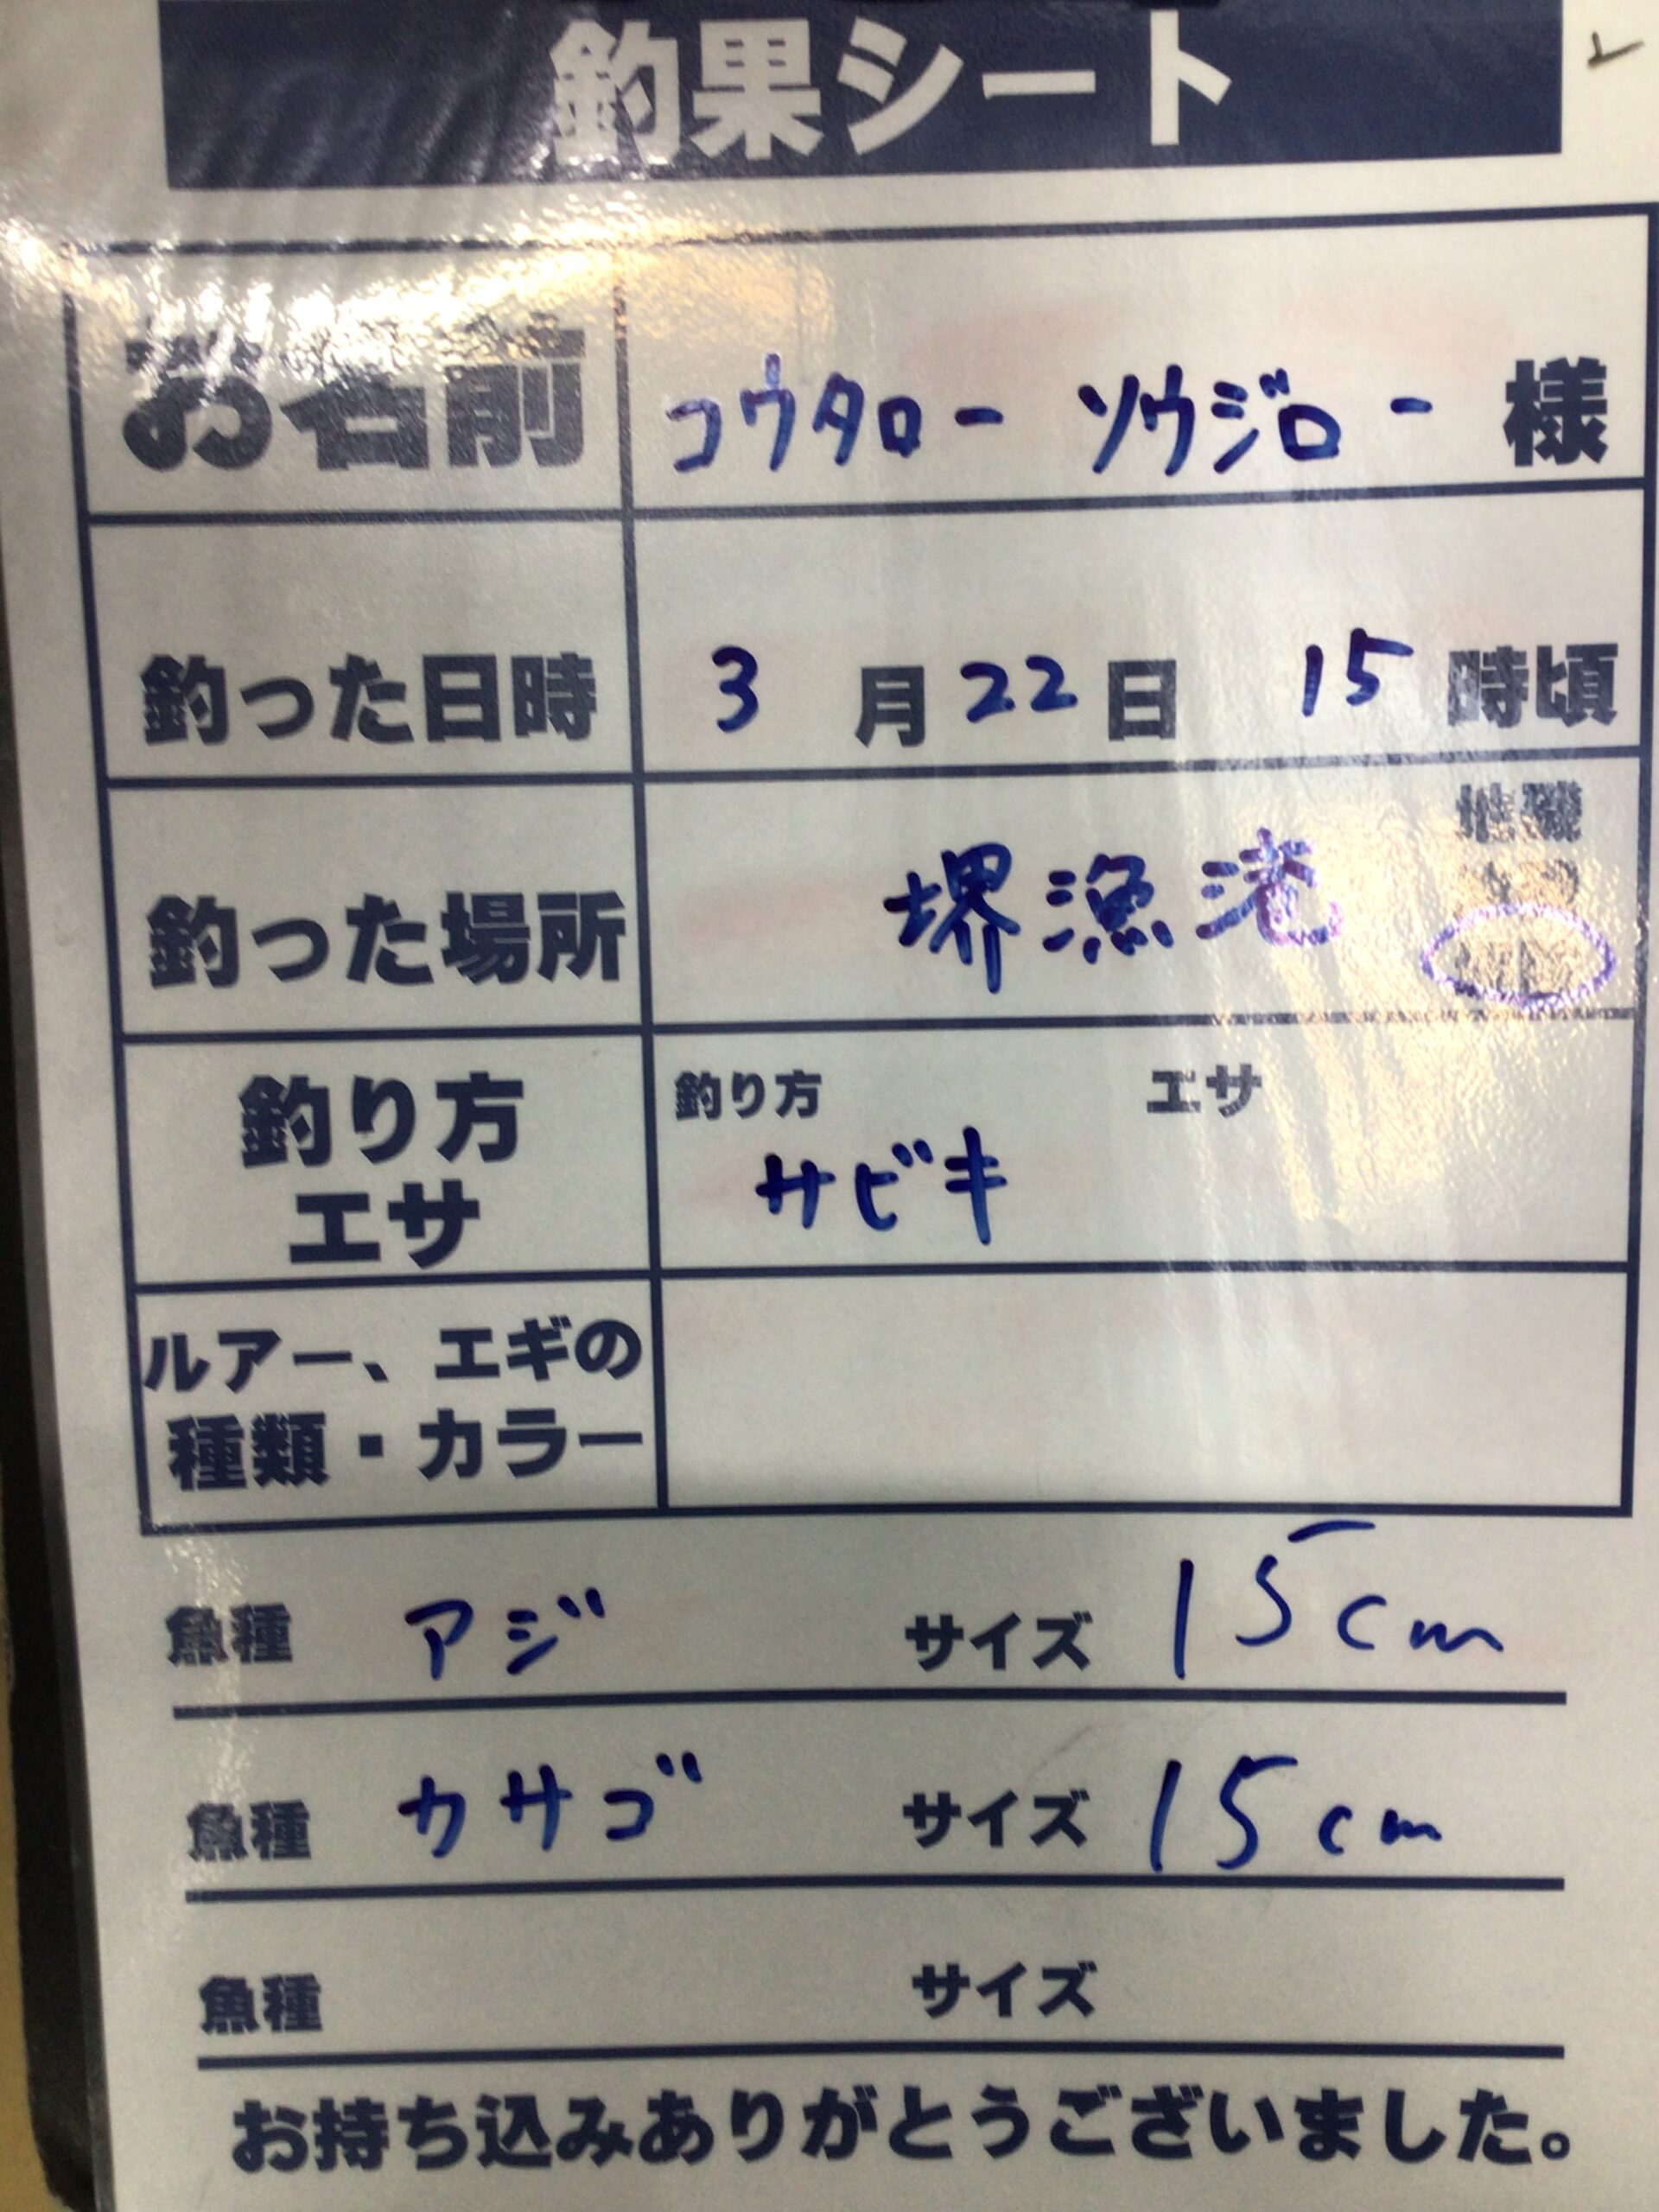 釣果シート
お名前 コウタロー ソウジロー 様
釣った日時 3 月 22 日 15 時頃
地磯
釣った場所 堺漁港
釣り方 エサ
釣り方
エサ
サビキ
ルアー、エギの
種類・カラー
魚種 アジ サイズ 15cm
魚種 カサゴ サイズ 15cm
魚種 サイズ
お持ち込みありがとうございました。